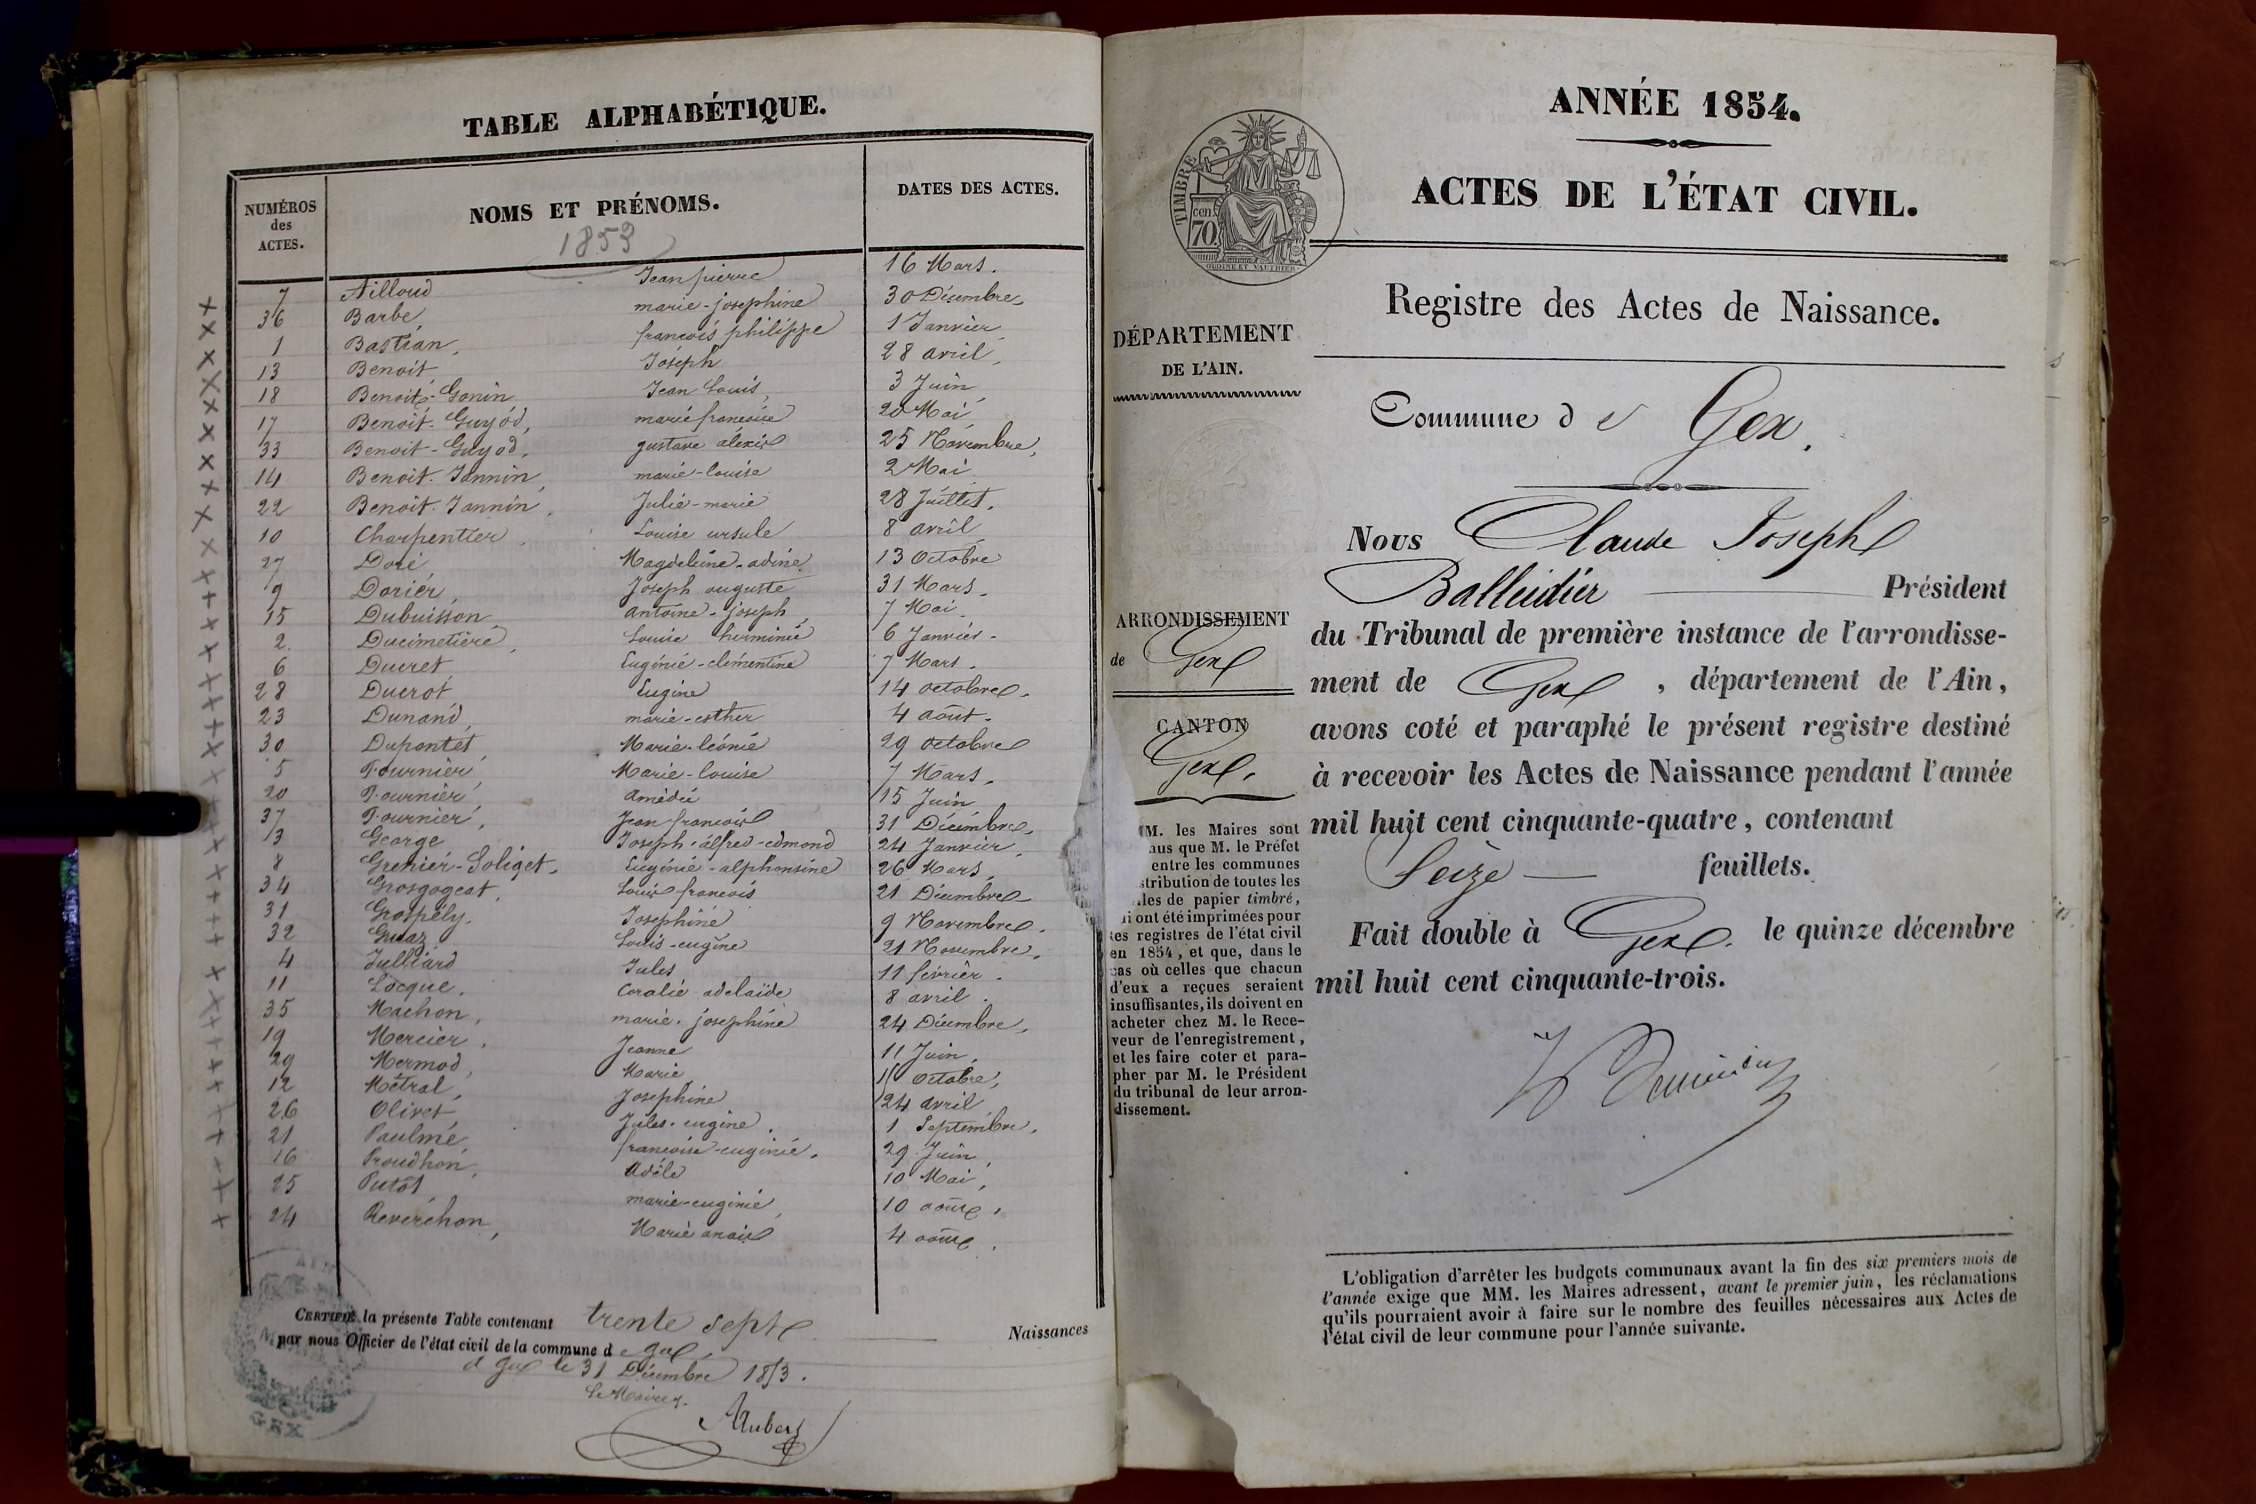 TABLE ALPHABÉTIQUE.
NUMÉROS des ACTES.
NOMS ET PRÉNOMS.
1853
DATES DES ACTES.
7 Ailloud Jean pierre 16 Mars.
36 Barbe, marie-josephine 30 Décembre,
1 Bastian, francois philippe 1 Janvier
13 Benoit Joseph 28 avril,
18 Benoit-Gonin Jean Louis, 3 Juin
17 Benoit-Guyod, marie francoise 20 Mai
33 Benoit-Guyod, gustave alexis 25 Novembre,
14 Benoit-Jannin, marie-louise 2 Mai
22 Benoit-Jannin, Julie-marie 28 Juillet,
10 Charpentier, Louise ursule 8 avril
27 Doré Magdeleine-adine 13 Octobre
9 Dorier Joseph auguste 31 Mars.
15 Dubuisson antoine-joseph, 7 Mai.
2. Ducimetière, Louise herminie 6 Janvier.
6 Ducret Eugénie-clémentine 7 Mars.
28 Ducrot Eugène 14 octobre.
23 Dunand, marie-esther 4 août.
30 Dupontet Marie-léonie 29 octobre
5 Fournier Marie-louise 7 Mars.
20 Fournier, amédée 15 Juin
37 Fournier, Jean francois 31 Décembre,
3 George Joseph-alfred-edmond 24 Janvier,
8 Grenier-Soliget. Eugénie-alphonsine 26 Mars,
34 Grosgogeat, Louis francois 21 Décembre
31 Grospély. Josephine 9 Novembre.
32 Guaz Louis-eugène 21 Novembre,
4 Julliard Jules 11 février.
11 Locque. Coralie adelaïde 8 avril.
35 Machon, marie-josephine 24 Décembre,
19 Mercier, Jeanne 11 Juin,
29 Mermod, Marie, 15 octobre,
12 Métral, Josephine 24 avril
26 Olivet Jules-eugène. 1 Septembre,
21 Paulmé francoise-eugénie. 29 Juin,
16 Proudhon, Adèle 10 Mai,
25 Putot marie-eugénie, 10 août,
24 Reverchon, Marie anaïs 4 août.
CERTIFIÉ la présente Table contenant trente sept Naissances
par nous Officier de l'état civil de la commune de Gex,
à Gex le 31 Décembre 1853.
Le Maire
GEX
ANNÉE 1854.
TIMBRE
70 cen.
OUDINE ET VAUTHIER
ACTES DE L'ÉTAT CIVIL.
Registre des Actes de Naissance.
DÉPARTEMENT
DE L'AIN.
Commune de Gex.
Nous Claude Joseph
Balleidier Président
ARRONDISSEMENT
de Gex
du Tribunal de première instance de l'arrondisse-
ment de Gex, département de l'Ain,
avons coté et paraphé le présent registre destiné
à recevoir les Actes de Naissance pendant l'année
mil huit cent cinquante-quatre, contenant
Seize feuillets.
Fait double à Gex. le quinze décembre
mil huit cent cinquante-trois.
CANTON
Gex.
M. les Maires sont
que M. le Préfet
entre les communes
de toutes les
de papier timbré,
ont été imprimées pour
registres de l'état civil
en 1854, et que, dans le
cas où celles que chacun
d'eux a reçues seraient
insuffisantes, ils doivent en
acheter chez M. le Rece-
veur de l'enregistrement,
et les faire coter et para-
pher par M. le Président
du tribunal de leur arron-
dissement.
L'obligation d'arrêter les budgets communaux avant la fin des six premiers mois de
l'année exige que MM. les Maires adressent, avant le premier juin, les réclamations
qu'ils pourraient avoir à faire sur le nombre des feuilles nécessaires aux Actes de
l'état civil de leur commune pour l'année suivante.